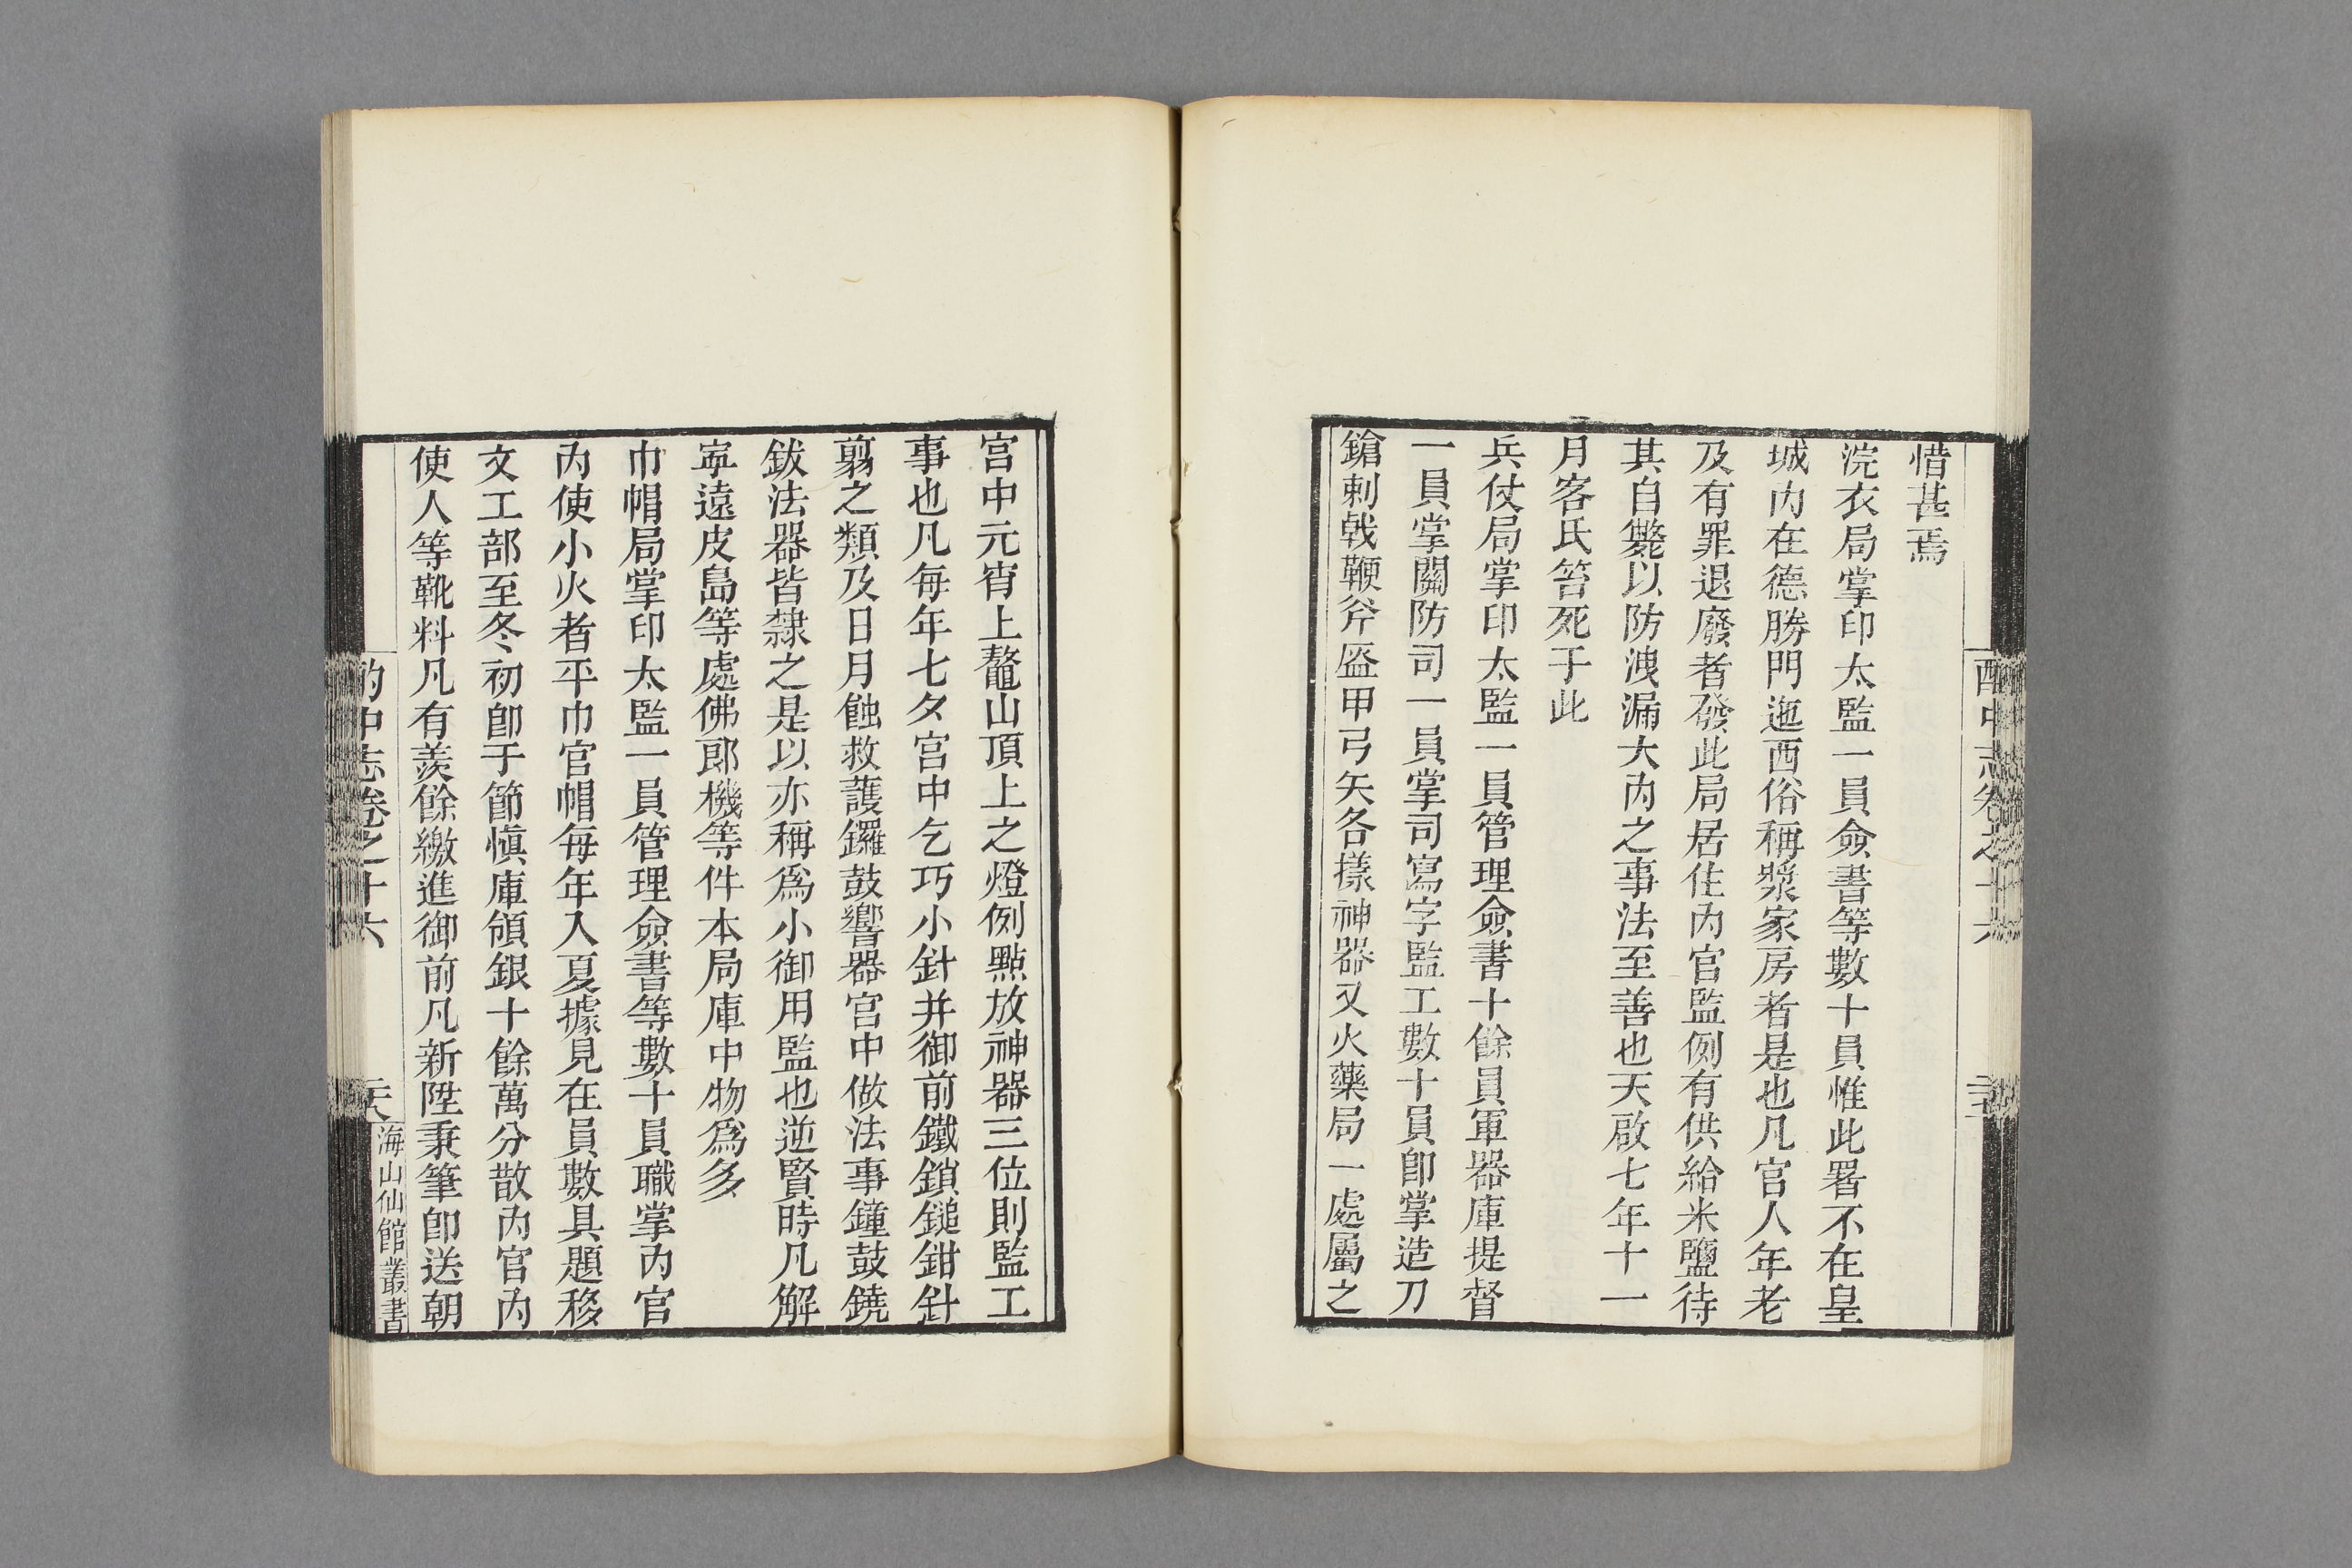 酌中志卷之十六
惜甚焉
浣衣局掌印太監一員僉書等數十員惟此署不在皇
城内在德勝門迤西俗稱漿家房者是也凡官人年老
及有罪退廢者發此局居住内官監例有供給米鹽待
其自斃以防洩漏大内之事法至善也天啟七年十一
月客氏笞死于此
兵仗局掌印太監一員管理僉書十餘員軍器庫提督
一員掌關防司一員掌司寫字監工數十員卽掌造刀
鎗刺戟鞭斧盔甲弓矢各樣神器又火藥局一處屬之
宮中元宵上鼇山頂上之燈例點放神器三位則監工
事也凡每年七夕宮中乞巧小針并御前鐵鎖鎚鉗針
剪之類及日月蝕救護鑼鼓響器宮中做法事鐘鼓鐃
鈸法器皆隸之是以亦稱爲小御用監也逆賢時凡解
寧遠皮島等處佛郎機等件本局庫中物爲多
巾帽局掌印太監一員管理僉書等數十員職掌内官
内使小火者平巾官帽每年入夏據見在員數具題移
文工部至冬初卽于節愼庫領銀十餘萬分散内官内
使人等靴料凡有羨餘繳進御前凡新陞秉筆卽送朝
酌中志卷之十六
海山仙館叢書